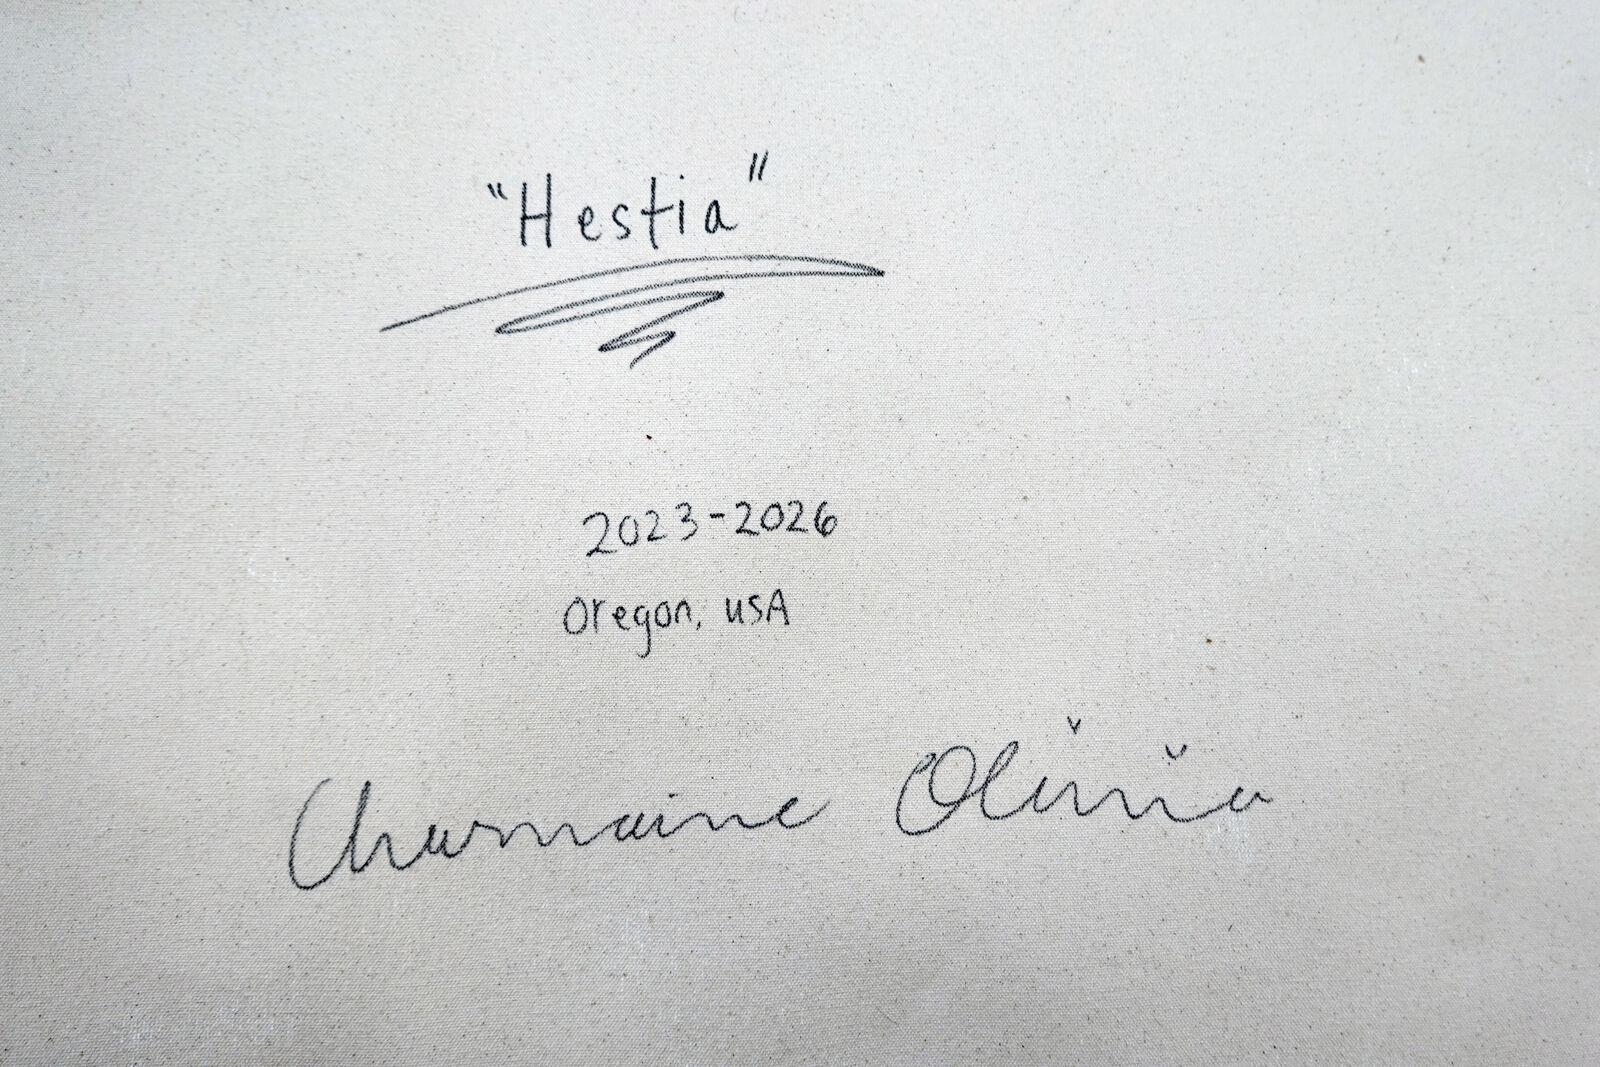 "Hestia"
2023-2026
Oregon, USA
Charmaine Olivia